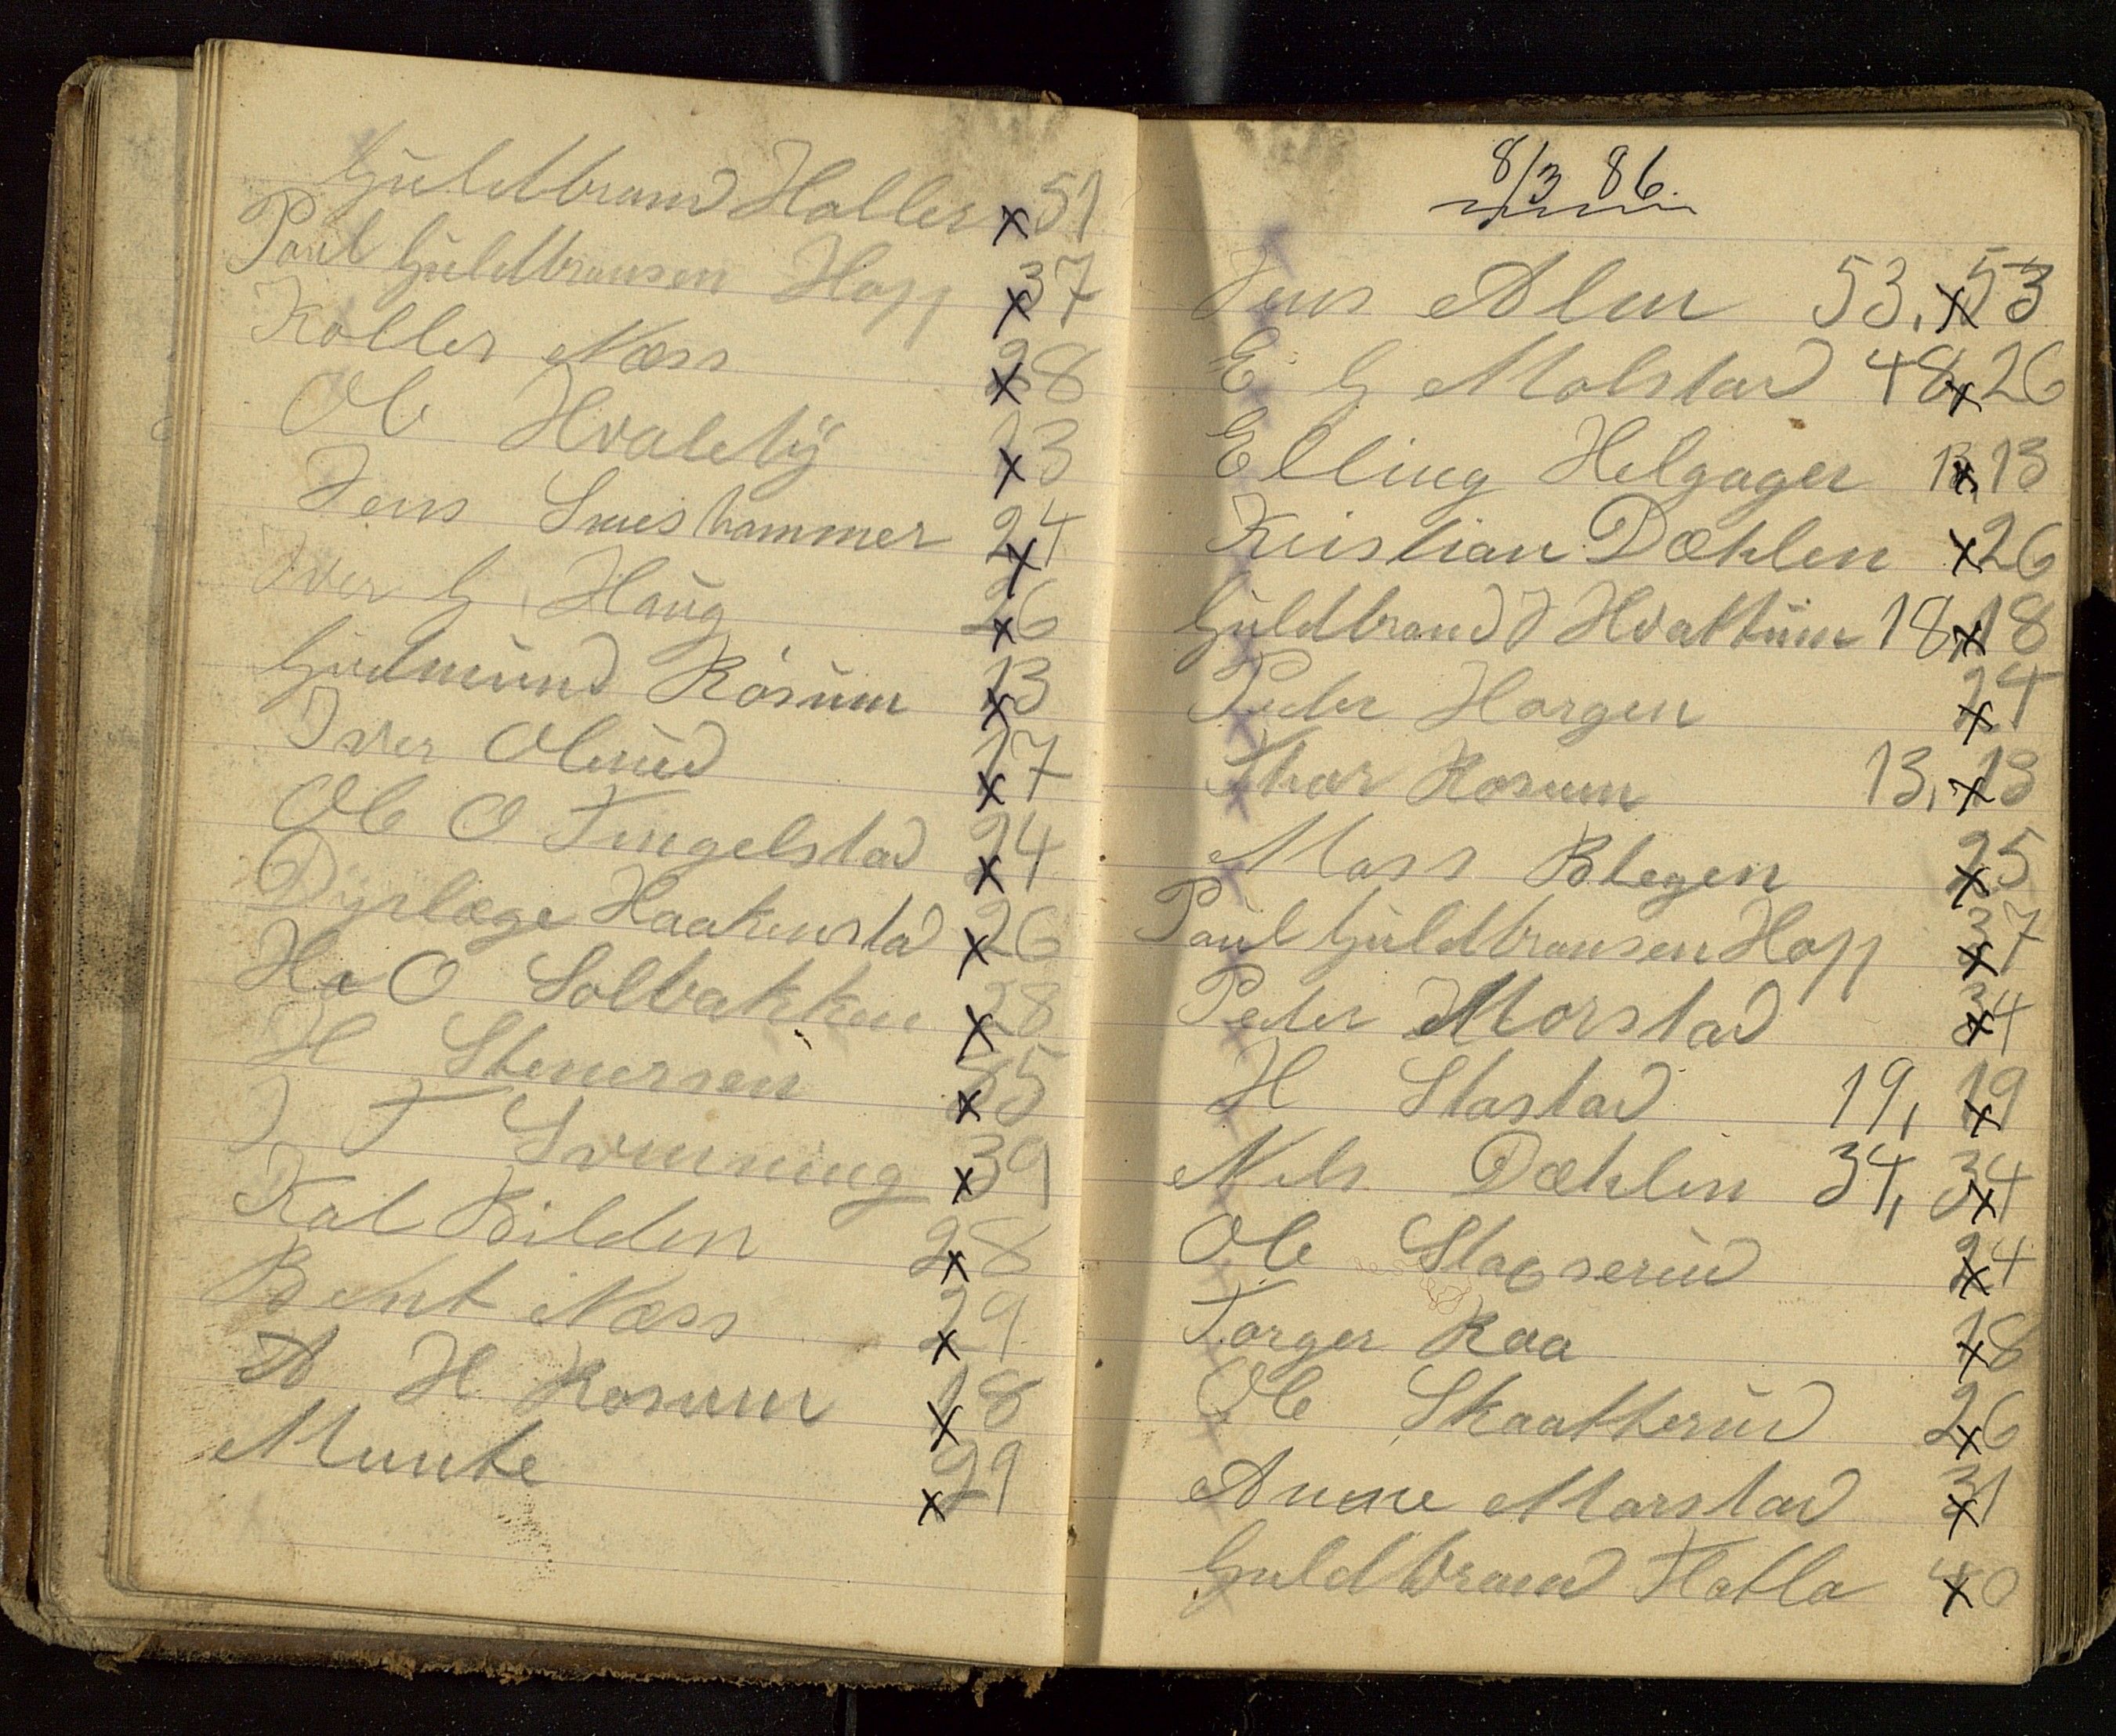 Guldbrand Haller x 51
Paul Guldbransen Hopp x 37
Koller Næss x 28
Ole Hvaleby x 13
Jens Smeshammer x 24
Iver G. Haug x 26
Gudmund Kosum x 13
Iver Olerud x 17
Ole O Tingelstad x 24
Dyrlæge Haakenstad x 26
Ha O Solbakken x 28
H Stenersen x 35
J T Svenning x 39
Kal Bilden 2x8
Bent Næss x 29
A H Rosum x 18
Munte x 29
8/3 86.
Jens Alm 53, x 53
E G Molstad 48, x 26
Elling Helgager 13, x 13
Kristian Dæhlen x 26
Guldbrand J Hvattum 18, x 18
Peder Horgen x 24
Thor Rosum 13, x 13
Mass Blegen x 25
Paul Guldbransen Hopp x 37
Peder Morstad x 34
H Stastad 19, x 19
Nils Dæhlen 34, x 34
Ole Slagserud x 24
Torger Raa x 18
Ole Skaatterud x 26
Anne Morstad x 31
Guldbrand Flatla x 40